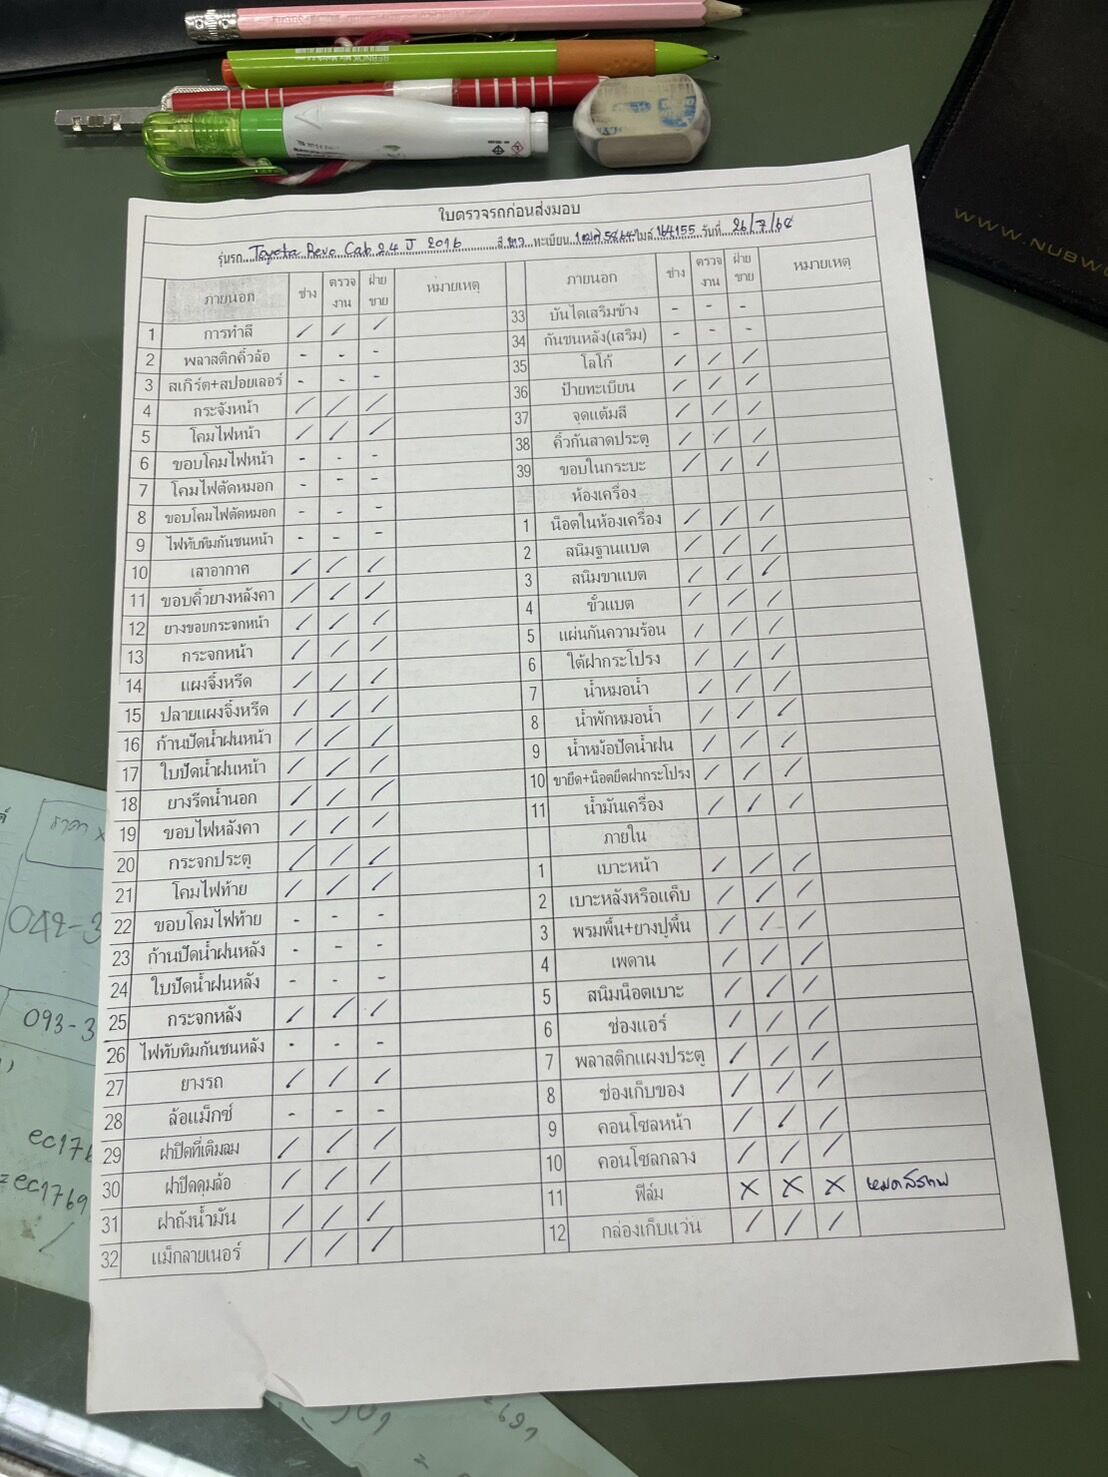 ใบตรวจรถก่อนส่งมอบ
รุ่นรถ Toyota Revo Cab 2.4 J 2016 สี ขาว ทะเบียน ไมล์ 164155 วันที่ 26/7/68
ภายนอก ช่าง ตรวจงาน ฝ่ายขาย หมายเหตุ
1 การทำสี / / /
2 พลาสติกคิ้วล้อ - - -
3 สเกิร์ต+สปอยเลอร์ - - -
4 กระจังหน้า / / /
5 โคมไฟหน้า / / /
6 ขอบโคมไฟหน้า - - -
7 โคมไฟตัดหมอก - - -
8 ขอบโคมไฟตัดหมอก - - -
9 ไฟทับทิมกันชนหน้า - - -
10 เสาอากาศ / / /
11 ขอบคิ้วยางหลังคา / / /
12 ยางขอบกระจกหน้า / / /
13 กระจกหน้า / / /
14 แผงจิ้งหรีด / / /
15 ปลายแผงจิ้งหรีด / / /
16 ก้านปัดน้ำฝนหน้า / / /
17 ใบปัดน้ำฝนหน้า / / /
18 ยางรีดน้ำนอก / / /
19 ขอบไฟหลังคา / / /
20 กระจกประตู / / /
21 โคมไฟท้าย / / /
22 ขอบโคมไฟท้าย - - -
23 ก้านปัดน้ำฝนหลัง - - -
24 ใบปัดน้ำฝนหลัง - - -
25 กระจกหลัง / / /
26 ไฟทับทิมกันชนหลัง - - -
27 ยางรถ / / /
28 ล้อแม็กซ์ - - -
29 ฝาปิดที่เติมลม / / /
30 ฝาปิดดุมล้อ / / /
31 ฝาถังน้ำมัน / / /
32 แม็กลายเนอร์ / / /
ภายนอก ช่าง ตรวจงาน ฝ่ายขาย หมายเหตุ
33 บันไดเสริมข้าง - - -
34 กันชนหลัง(เสริม) - - -
35 โลโก้ / / /
36 ป้ายทะเบียน / / /
37 จุดแต้มสี / / /
38 คิ้วกันสาดประตู / / /
39 ขอบในกระบะ / / /
ห้องเครื่อง
1 น็อตในห้องเครื่อง / / /
2 สนิมฐานแบต / / /
3 สนิมขาแบต / / /
4 ขั้วแบต / / /
5 แผ่นกันความร้อน / / /
6 ใต้ฝากระโปรง / / /
7 น้ำหม้อน้ำ / / /
8 น้ำพักหม้อน้ำ / / /
9 น้ำหม้อปัดน้ำฝน / / /
10 ขายึด+น็อตยึดฝากระโปรง / / /
11 น้ำมันเครื่อง / / /
ภายใน
1 เบาะหน้า / / /
2 เบาะหลังหรือแค็บ / / /
3 พรมพื้น+ยางปูพื้น / / /
4 เพดาน / / /
5 สนิมน็อตเบาะ / / /
6 ช่องแอร์ / / /
7 พลาสติกแผงประตู / / /
8 ช่องเก็บของ / / /
9 คอนโซลหน้า / / /
10 คอนโซลกลาง / / /
11 ฟิล์ม X X X หมดสภาพ
12 กล่องเก็บแว่น / / /
WWW.NUBW
ราคา x
042-3
093-3